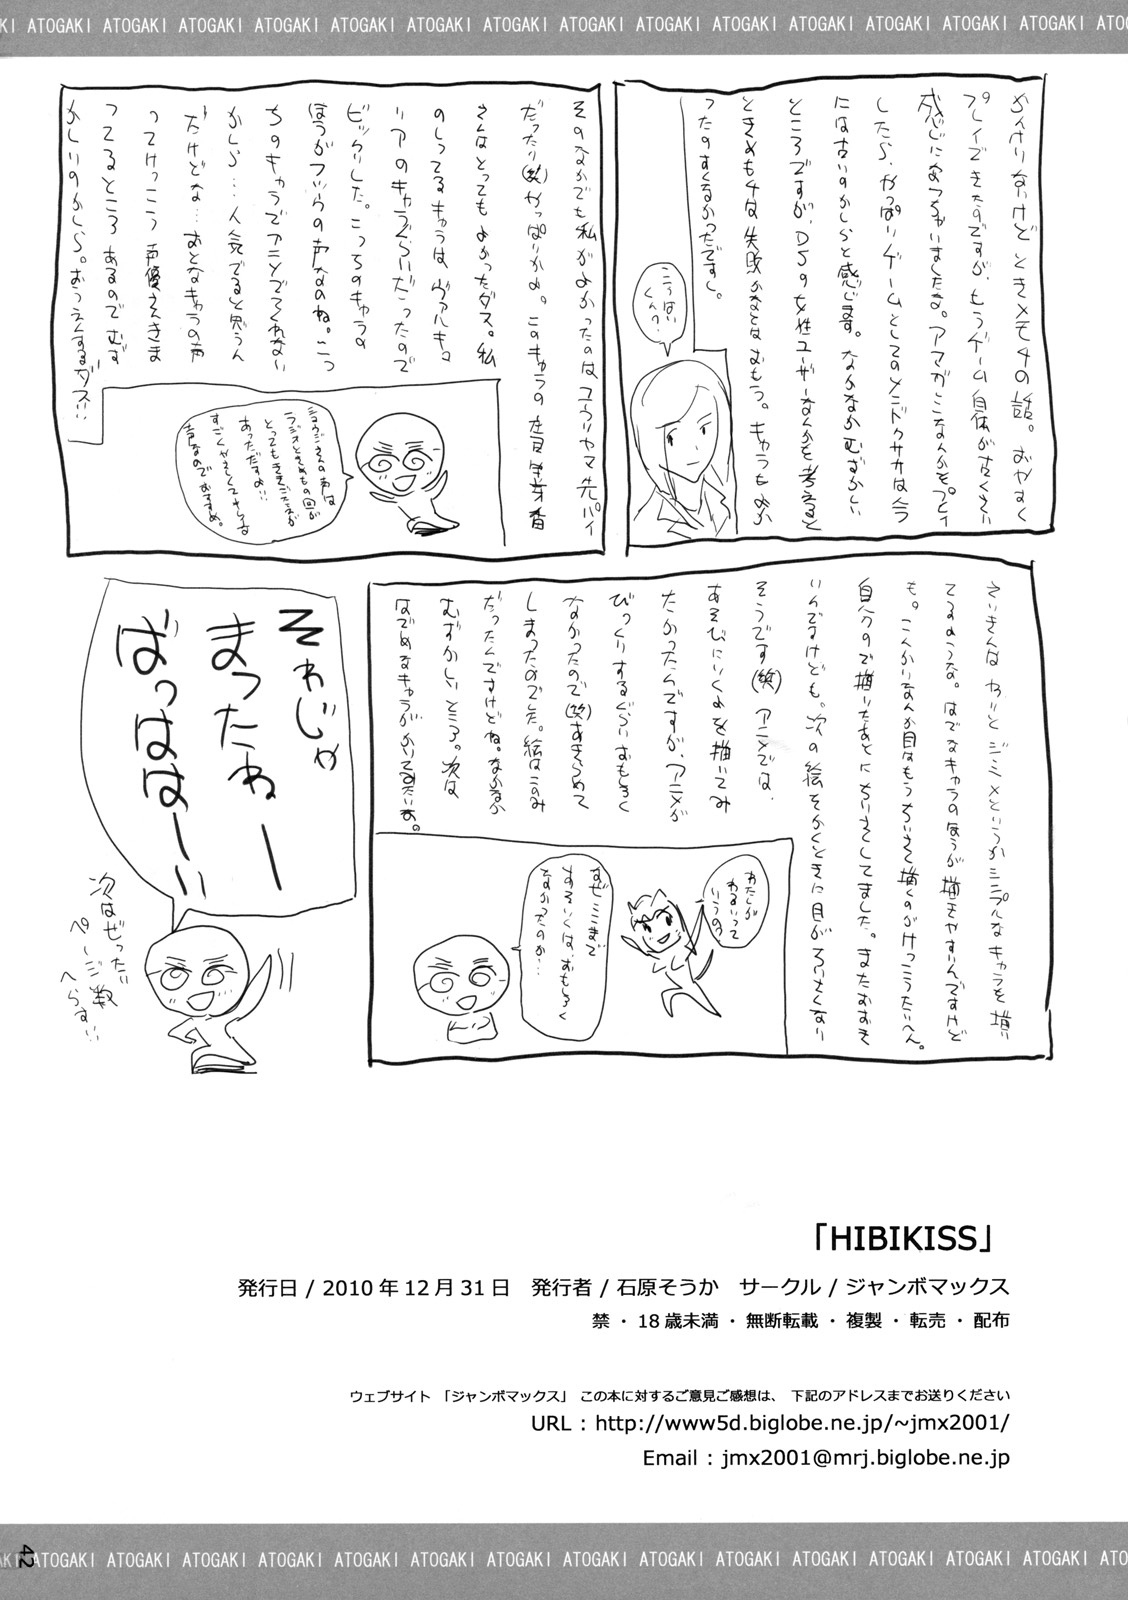 ATOGAKI ATOGAKI ATOGAKI ATOGAKI ATOGAKI ATOGAKI ATOGAKI ATOGAKI ATOGAKI ATOGAKI ATOGAKI ATOGAKI ATOGAKI ATOGAKI
かんけいないけど ときメモ4の話。おやすく
プレイできたのですが、もうゲーム自体が古くさい
感じにあっちゃいましたな。アマガミこなんかをプレイ
したら、やっぱりゲームとしてのメンドクササは今
には古いのかしらと感じます。なかなかむずかしい
ところですが、DSの女性ユーザーなんかを考えると
ときめも4は失敗かなとはおもう。キャラもよか
ったのすくなかったですし。
こうはい
くん?
そのなかでも私がよかったのはユウリヤマ先パイ
だったり(笑)やっぱりかよ。このキャラの
さんはとってもよかったダス。私
のしってるキャラは ヴァルキュ
リアのキャラぐらいだったので
ビックリした。こっちのキャラの
ほうがフツウの声なのね。こっ
ちのキャラでアニメでてくれない
かしら…人気でると思うん
だけどな…おとなキャラの声
ってけっこう 声優えらきま
ってるところ あるので むず
かしいのかしら。おうえんするダス!!
ラジオときめもの回が
とってもききごたえが
あっただすよ!!
すごくやさしくてキレイな
声なのでおすすめ。
さいきんは わりと ジミメというかシンプルなキャラを描い
てるような。はでなキャラのほうが描きやすいんですけど
も。こんかいなんか目はもうちいさく描くのがけっこうたいへん。
自分ので描いたあとにちいさくしてました。またおおき
いんですけども。次の絵をかくときに目がちいさくなり
そうです(笑)アニメでは、
あそびにいくよを描いてみ
たかったんですが、アニメが
びっくりするぐらいおもしろく
なかったので(笑)あきらめて
しまったのでした。絵はこのみ
だったんですけどね。なかなか
むずかしいところ。次は
はでめなキャラがかいてみたいな。
わたしが
わるいって
いうの?
なぜここまで
すがすがしくおもしろく
なかったのか…
それじゃ
まったねー
ばっはは～い!
次はぜったい
ページ数
へらす!!
「HIBIKISS」
発行日 / 2010 年 12 月 31 日　発行者 / 石原そうか　サークル / ジャンボマックス
禁 ・ 18 歳未満 ・ 無断転載 ・ 複製 ・ 転売 ・ 配布
ウェブサイト 「ジャンボマックス」 この本に対するご意見ご感想は、 下記のアドレスまでお送りください
URL : http://www5d.biglobe.ne.jp/~jmx2001/
Email : jmx2001@mrj.biglobe.ne.jp
42
ATOGAKI ATOGAKI ATOGAKI ATOGAKI ATOGAKI ATOGAKI ATOGAKI ATOGAKI ATOGAKI ATOGAKI ATOGAKI ATOGAKI ATOGAKI ATO